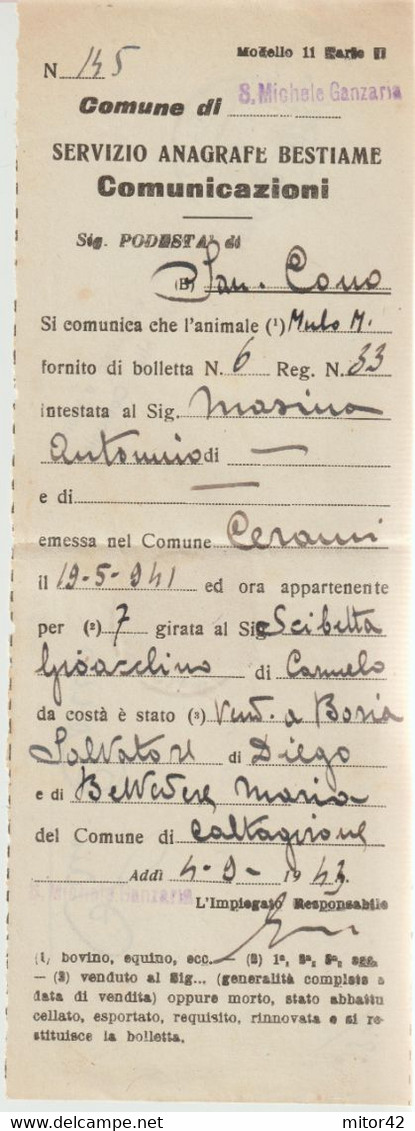 Modello 11 Serie II
N 145
Comune di S. Michele Ganzaria
SERVIZIO ANAGRAFE BESTIAME
Comunicazioni
Sig. PODESTA' di
(B) San Cono
Si comunica che l'animale (¹) Mulo M.
fornito di bolletta N. 6 Reg. N. 33
intestata al Sig. Masina
Antonnio di —
e di —
emessa nel Comune Cerami
il 19-5-941 ed ora appartenente
per (²) 7 girata al Sig Scibetta
Gioacchino di Carmelo
da costà è stato (³) Vend. a Boria
Salvatore di Diego
e di Belvedere Maria
del Comune di Caltagirone
Addì 4-9-1943.
S. Michele Ganzaria
L'Impiegato Responsabile
(1) bovino, equino, ecc. — (2) 1ª, 2ª, 3ª, sgg.
— (3) venduto al Sig... (generalità complete e
data di vendita) oppure morto, stato abbattu
cellato, esportato, requisito, rinnovata e si re-
stituisce la bolletta.
https://www.delcampe.net mitor42